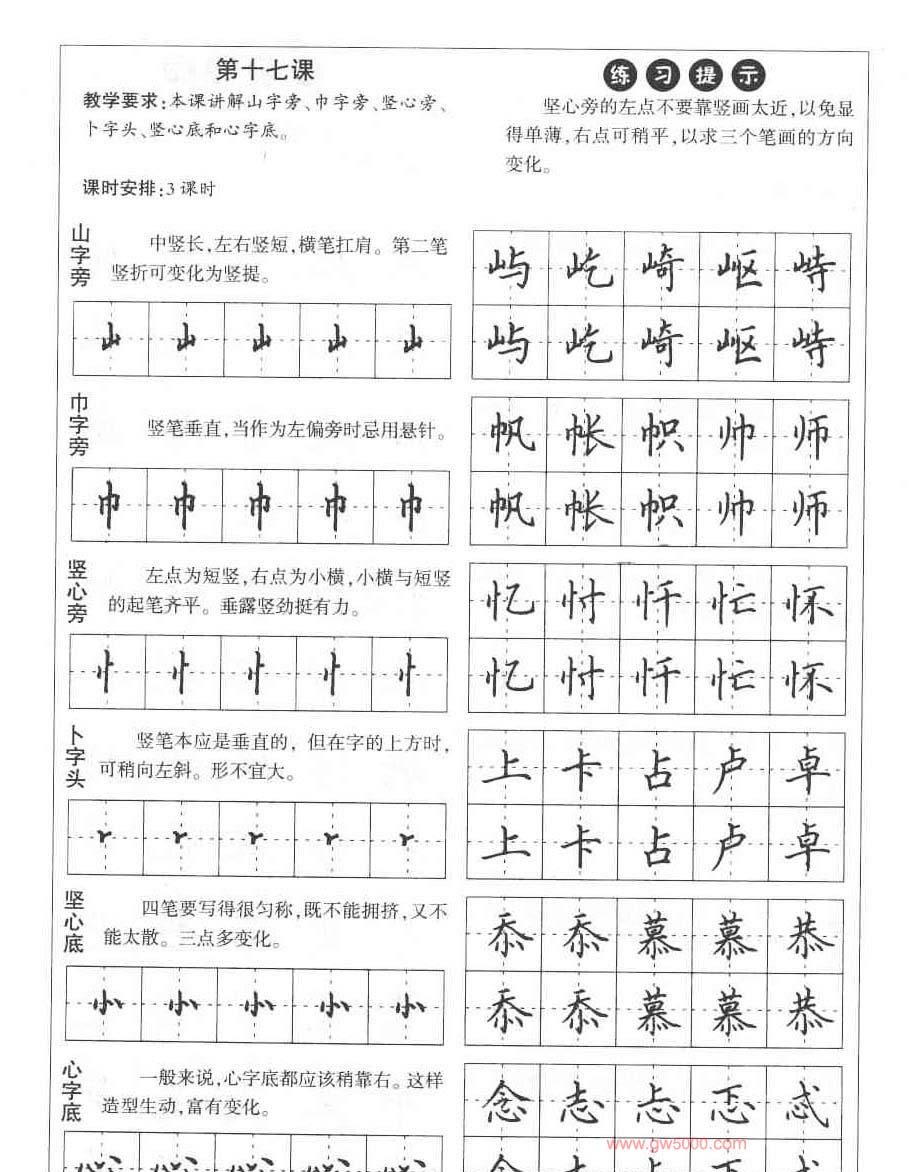 第十七课
教学要求:本课讲解山字旁、巾字旁、竖心旁、
卜字头、竖心底和心字底。
课时安排:3课时
练习提示
坚心旁的左点不要靠竖画太近,以免显
得单薄,右点可稍平,以求三个笔画的方向
变化。
山字旁
中竖长,左右竖短,横笔扛肩。第二笔
竖折可变化为竖提。
山 山 山 山 山
屿 屹 崎 岖 峙
屿 屹 崎 岖 峙
巾字旁
竖笔垂直,当作为左偏旁时忌用悬针。
巾 巾 巾 巾 巾
帆 帐 帜 帅 师
帆 帐 帜 帅 师
竖心旁
左点为短竖,右点为小横,小横与短竖
的起笔齐平。垂露竖劲挺有力。
忄 忄 忄 忄 忄
忆 忖 忏 忙 怀
忆 忖 忏 忙 怀
卜字头
竖笔本应是垂直的,但在字的上方时,
可稍向左斜。形不宜大。
上 卡 占 卢 卓
上 卡 占 卢 卓
坚心底
四笔要写得很匀称,既不能拥挤,又不
能太散。三点多变化。
㣺 㣺 㣺 㣺 㣺
忝 忝 慕 慕 恭
忝 忝 慕 慕 恭
心字底
一般来说,心字底都应该稍靠右。这样
造型生动,富有变化。
念 志 忐 忑 忒
www.gw5000.com